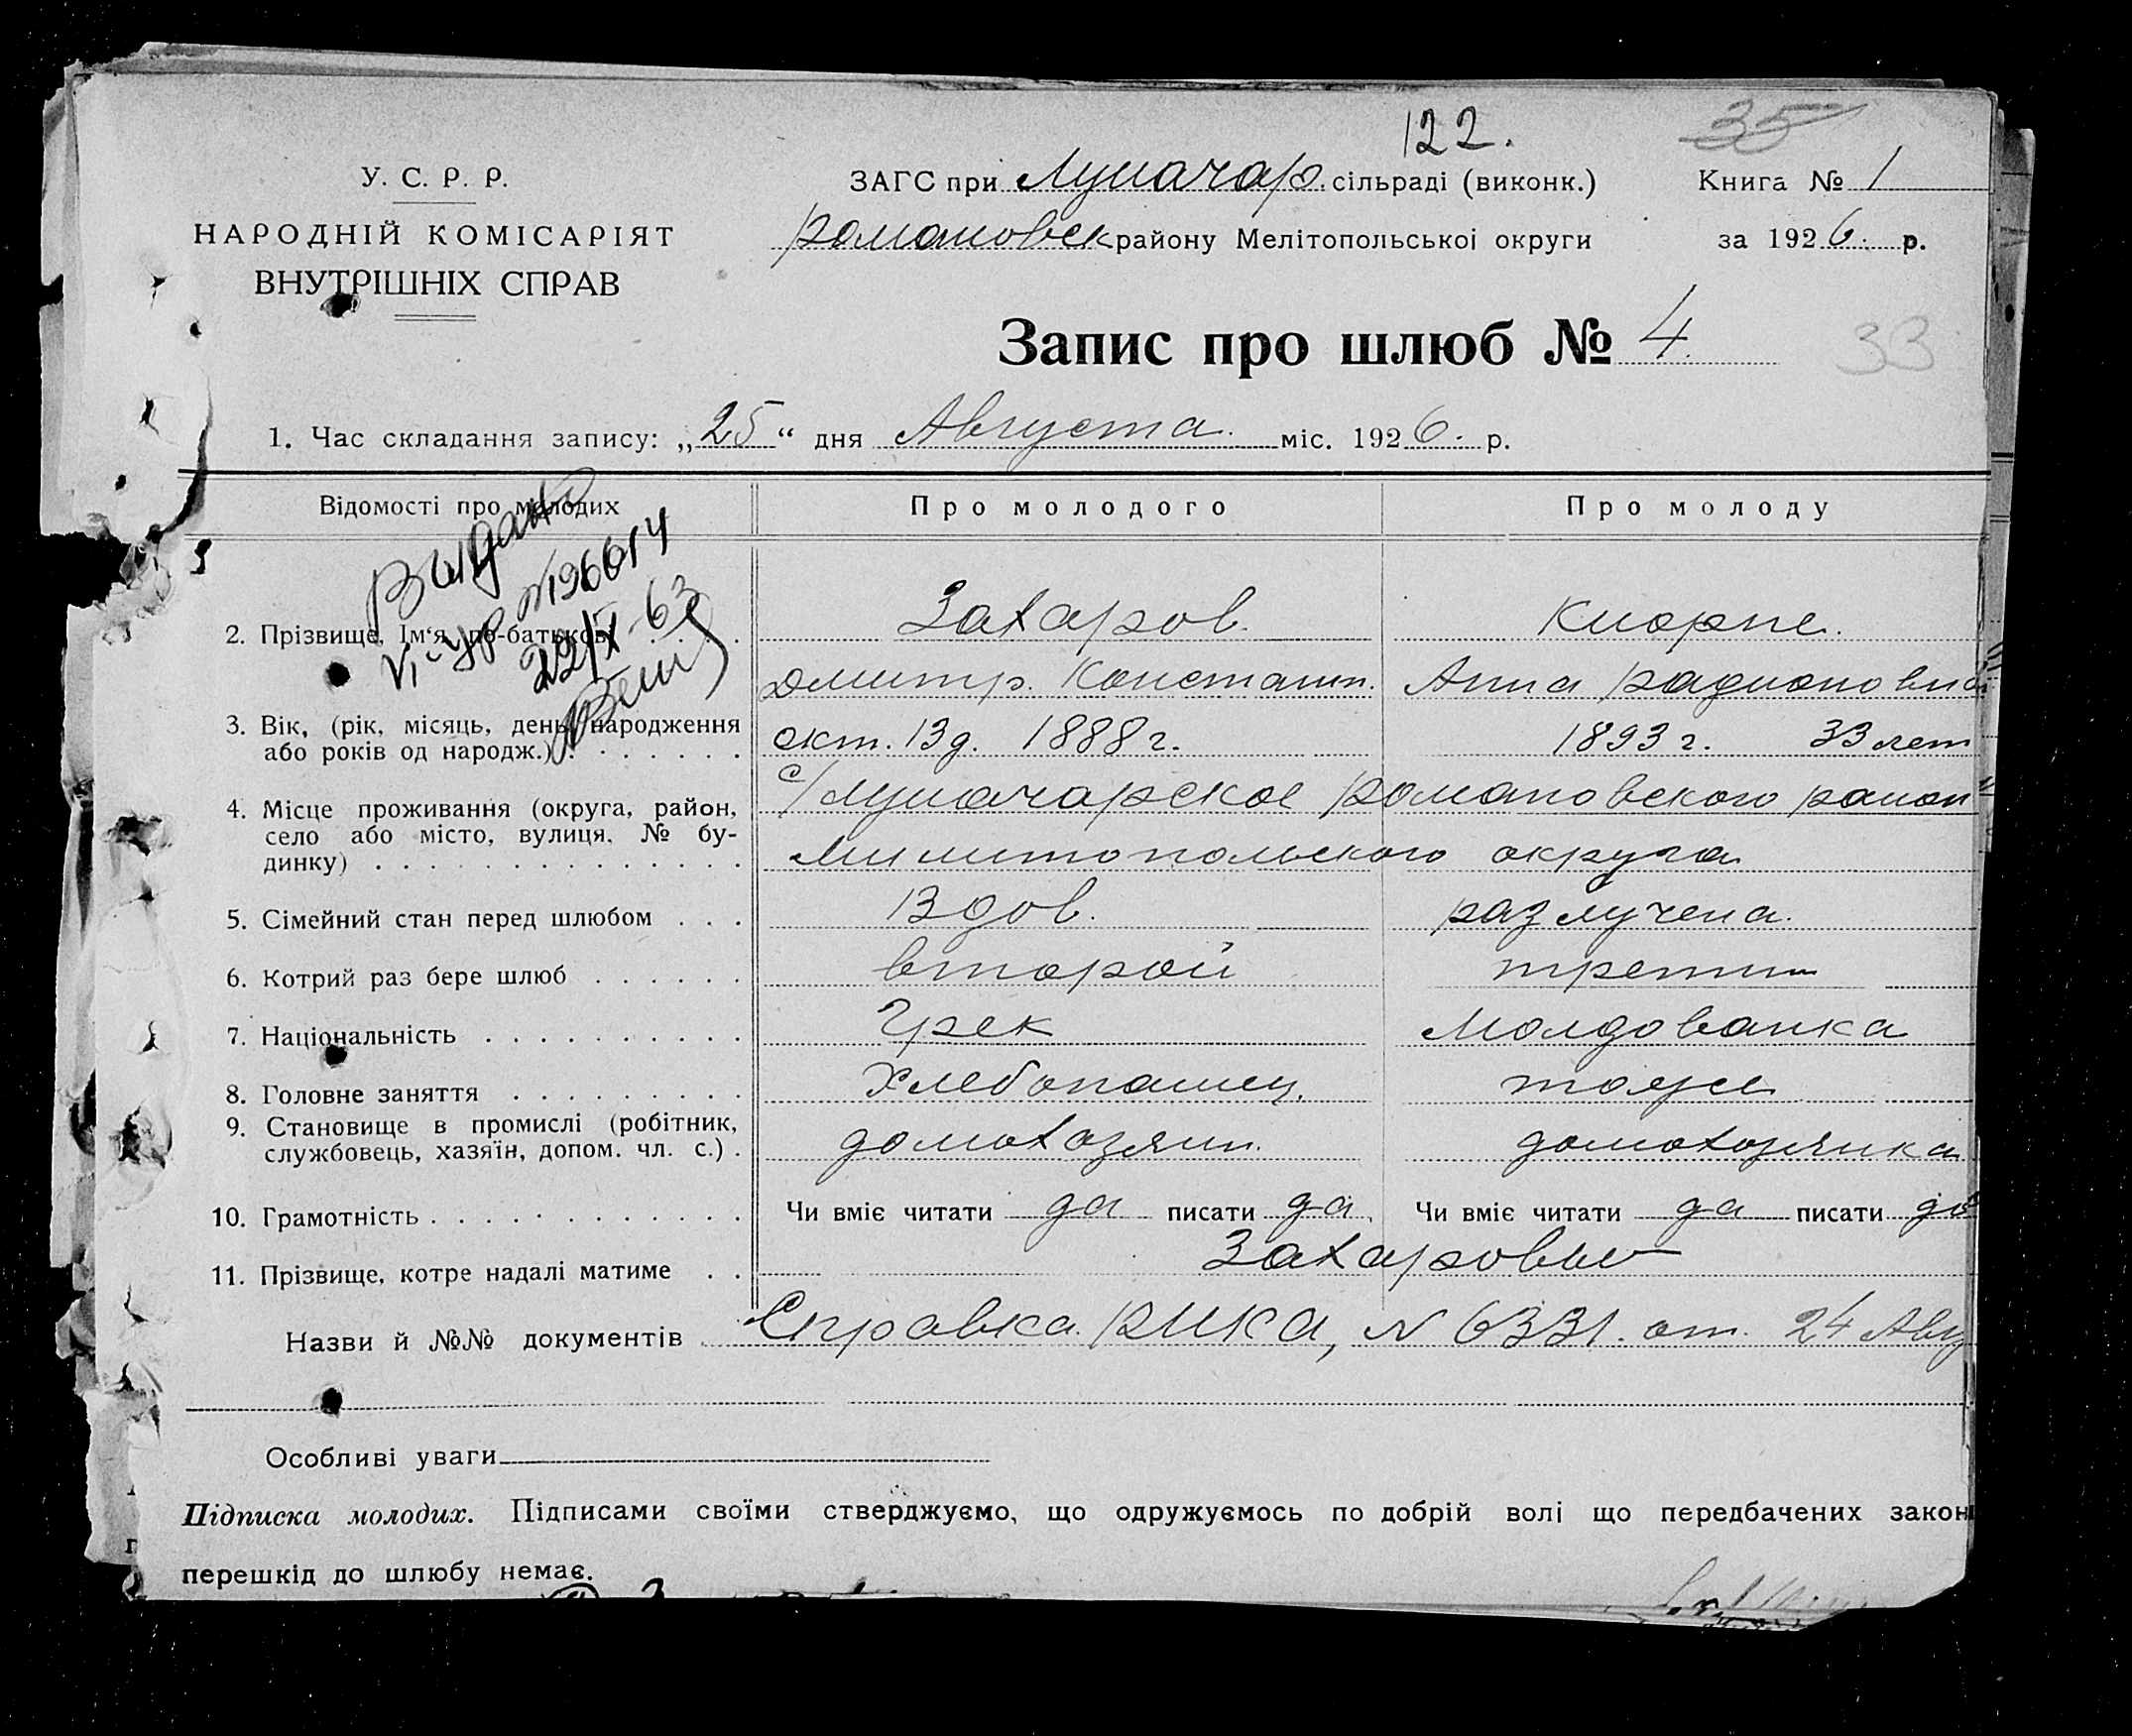 122.
35
У. С. Р. Р.
НАРОДНІЙ КОМІСАРІЯТ
ВНУТРІШНІХ СПРАВ
ЗАГС при Луначар. сільраді (виконк.)
Книга № 1
Романовск району Мелітопольської округи
за 1926. р.
Запис про шлюб № 4.
33
1. Час складання запису: „25“ дня Августа. міс. 1926. р.
Відомості про молодих
Про молодого
Про молоду
Выдано
196614
22/X-63
2. Прізвище, Ім‘я, по-батькові
Захаров.
Киорпе.
Дмитр. Констант.
Анна Радионовна
3. Вік, (рік, місяць, день народження
або років од народж.)
окт. 13 д. 1888 г.
1893 г. 33 лет
4. Місце проживання (округа, район,
село або місто, вулиця, № бу-
динку)
с/Луначарское Романовского район
Милитопольского округа
5. Сімейний стан перед шлюбом
Вдов.
разлучена.
6. Котрий раз бере шлюб
второй
третий
7. Національність
Грек
Молдованка
8. Головне заняття
Хлебопашец.
тоже
9. Становище в промислі (робітник,
службовець, хазяїн, допом. чл. с.)
домохозяин.
домохозяика
10. Грамотність
Чи вміє читати да писати да
Чи вміє читати да писати да
11. Прізвище, котре надалі матиме
Захаровы
Назви й №№ документів Справка РИКа, N 6331. от. 24 Авг
Особливі уваги
Підписка молодих. Підписами своїми стверджуємо, що одружуємось по добрій волі що передбачених закон
перешкід до шлюбу немає.